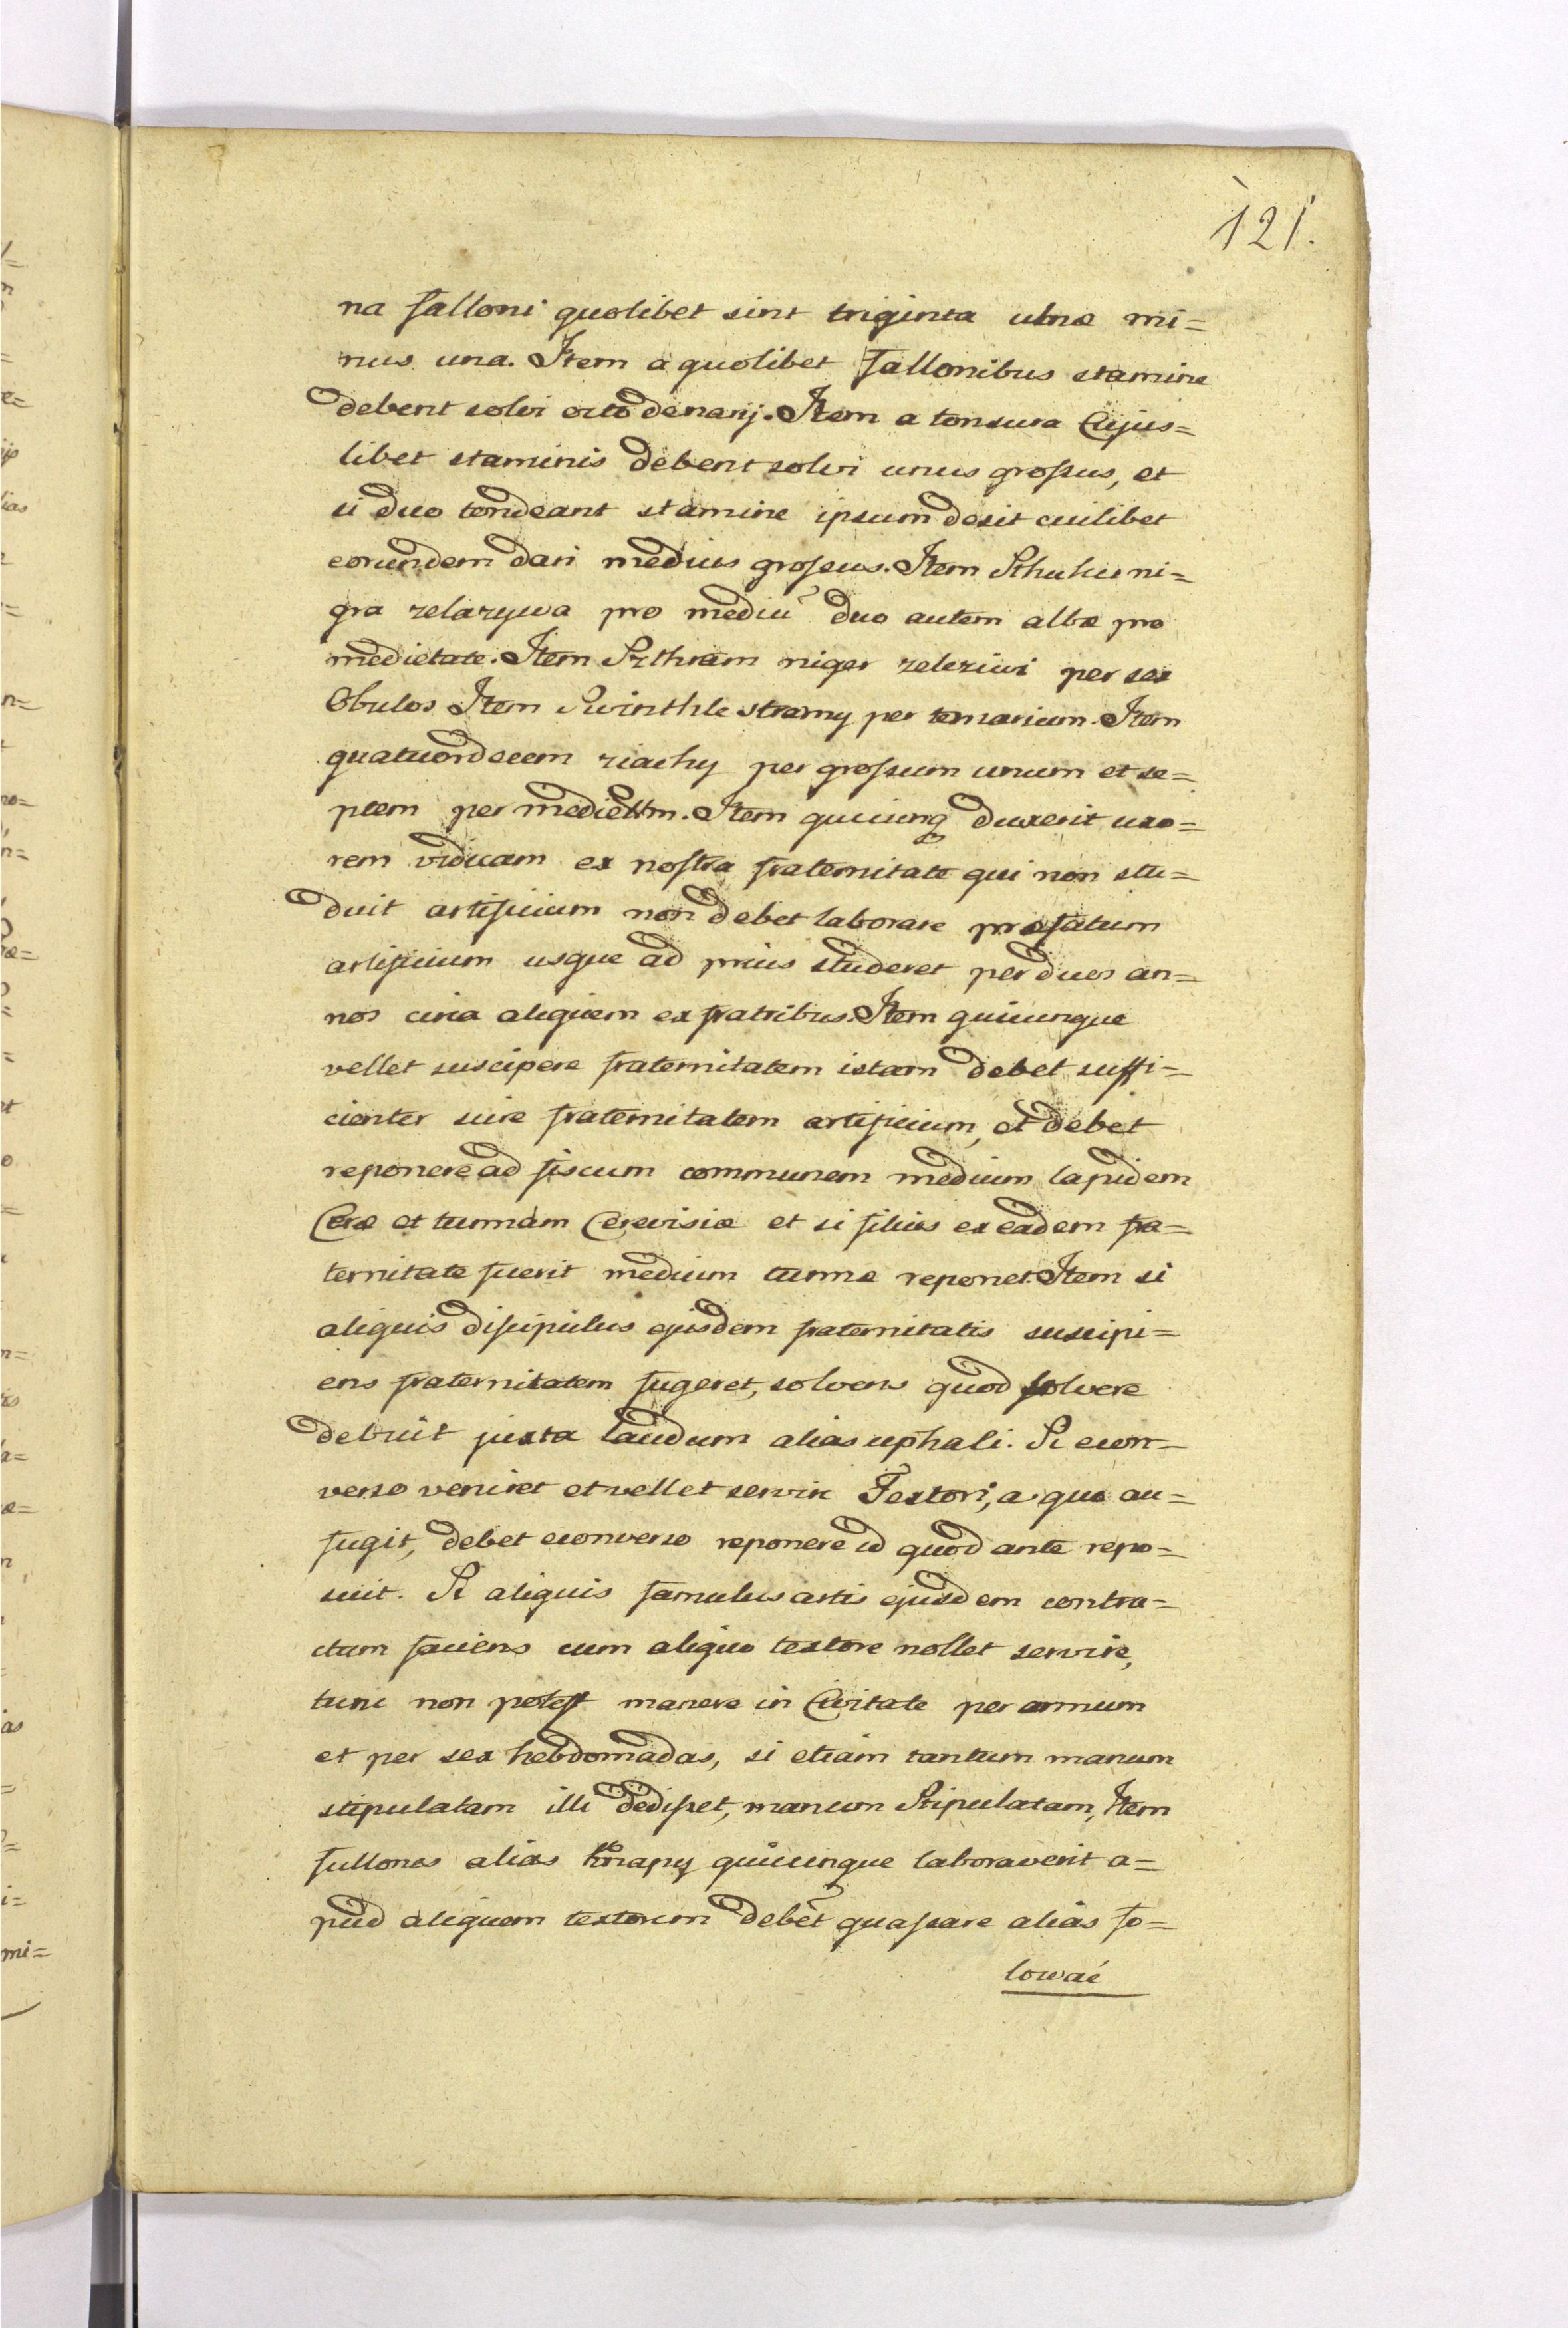 121.
na falloni quolibet sint triginta ulnæ mi=
nus una. Item a quolibet fallonibus stamine
debent solvi octo denarij. Item a tonsura Cujus=
libet staminis debent solvi unus grossus, et
si duo tondeant stamine ipsum desit cuilibet
eorundem dari medius grossus. Item Sthuka ni=
gra zelazywa pro mediu duo autem albæ pro
medietate. Item Szthram niger zeleziwi per sex
Obulos Item Swinthle stramy per ternarium. Item
quatuordecem ziachy per grossum unum et se=
ptem per mediettm. Item quicunq duxerit uxo=
rem viduam ex nostra fraternitate qui non stu=
duit artificium non debet laborare præfatum
artificium usque ad prius studeret per duos an=
nos circa aliquem ex fratribus. Item quicunque
vellet suscipere fraternitatem istam debet suffi=
cienter scire fraternitatem artificium, et debet
reponere ad fiscum communem medium lapidem
Ceræ et tunnam Cerevisiæ et si filius ex eadem fra=
ternitate fuerit medium tunnæ reponet. Item si
aliquis discipulus ejusdem fraternitatis suscipi=
ens fraternitatem fugeret, solvens quod solvere
debuit juxta laudum alias uphali. Si econ=
verso veniret et vellet servire Textori, a quo au=
fugit, debet econverso reponere id quod ante repo=
suit. Si aliquis famulus artis ejusdem contra=
ctum faciens cum aliquo textore nollet servire,
tunc non potest manere in Civitate per annum
et per sex hebdomadas, si etiam tantum manum
stipulatam illi dedisset, manum Stipulatam, Item
fullones alias knapy quicunque laboraverit a=
pud aliquem textorem debet quassare alias fo=
lowaé